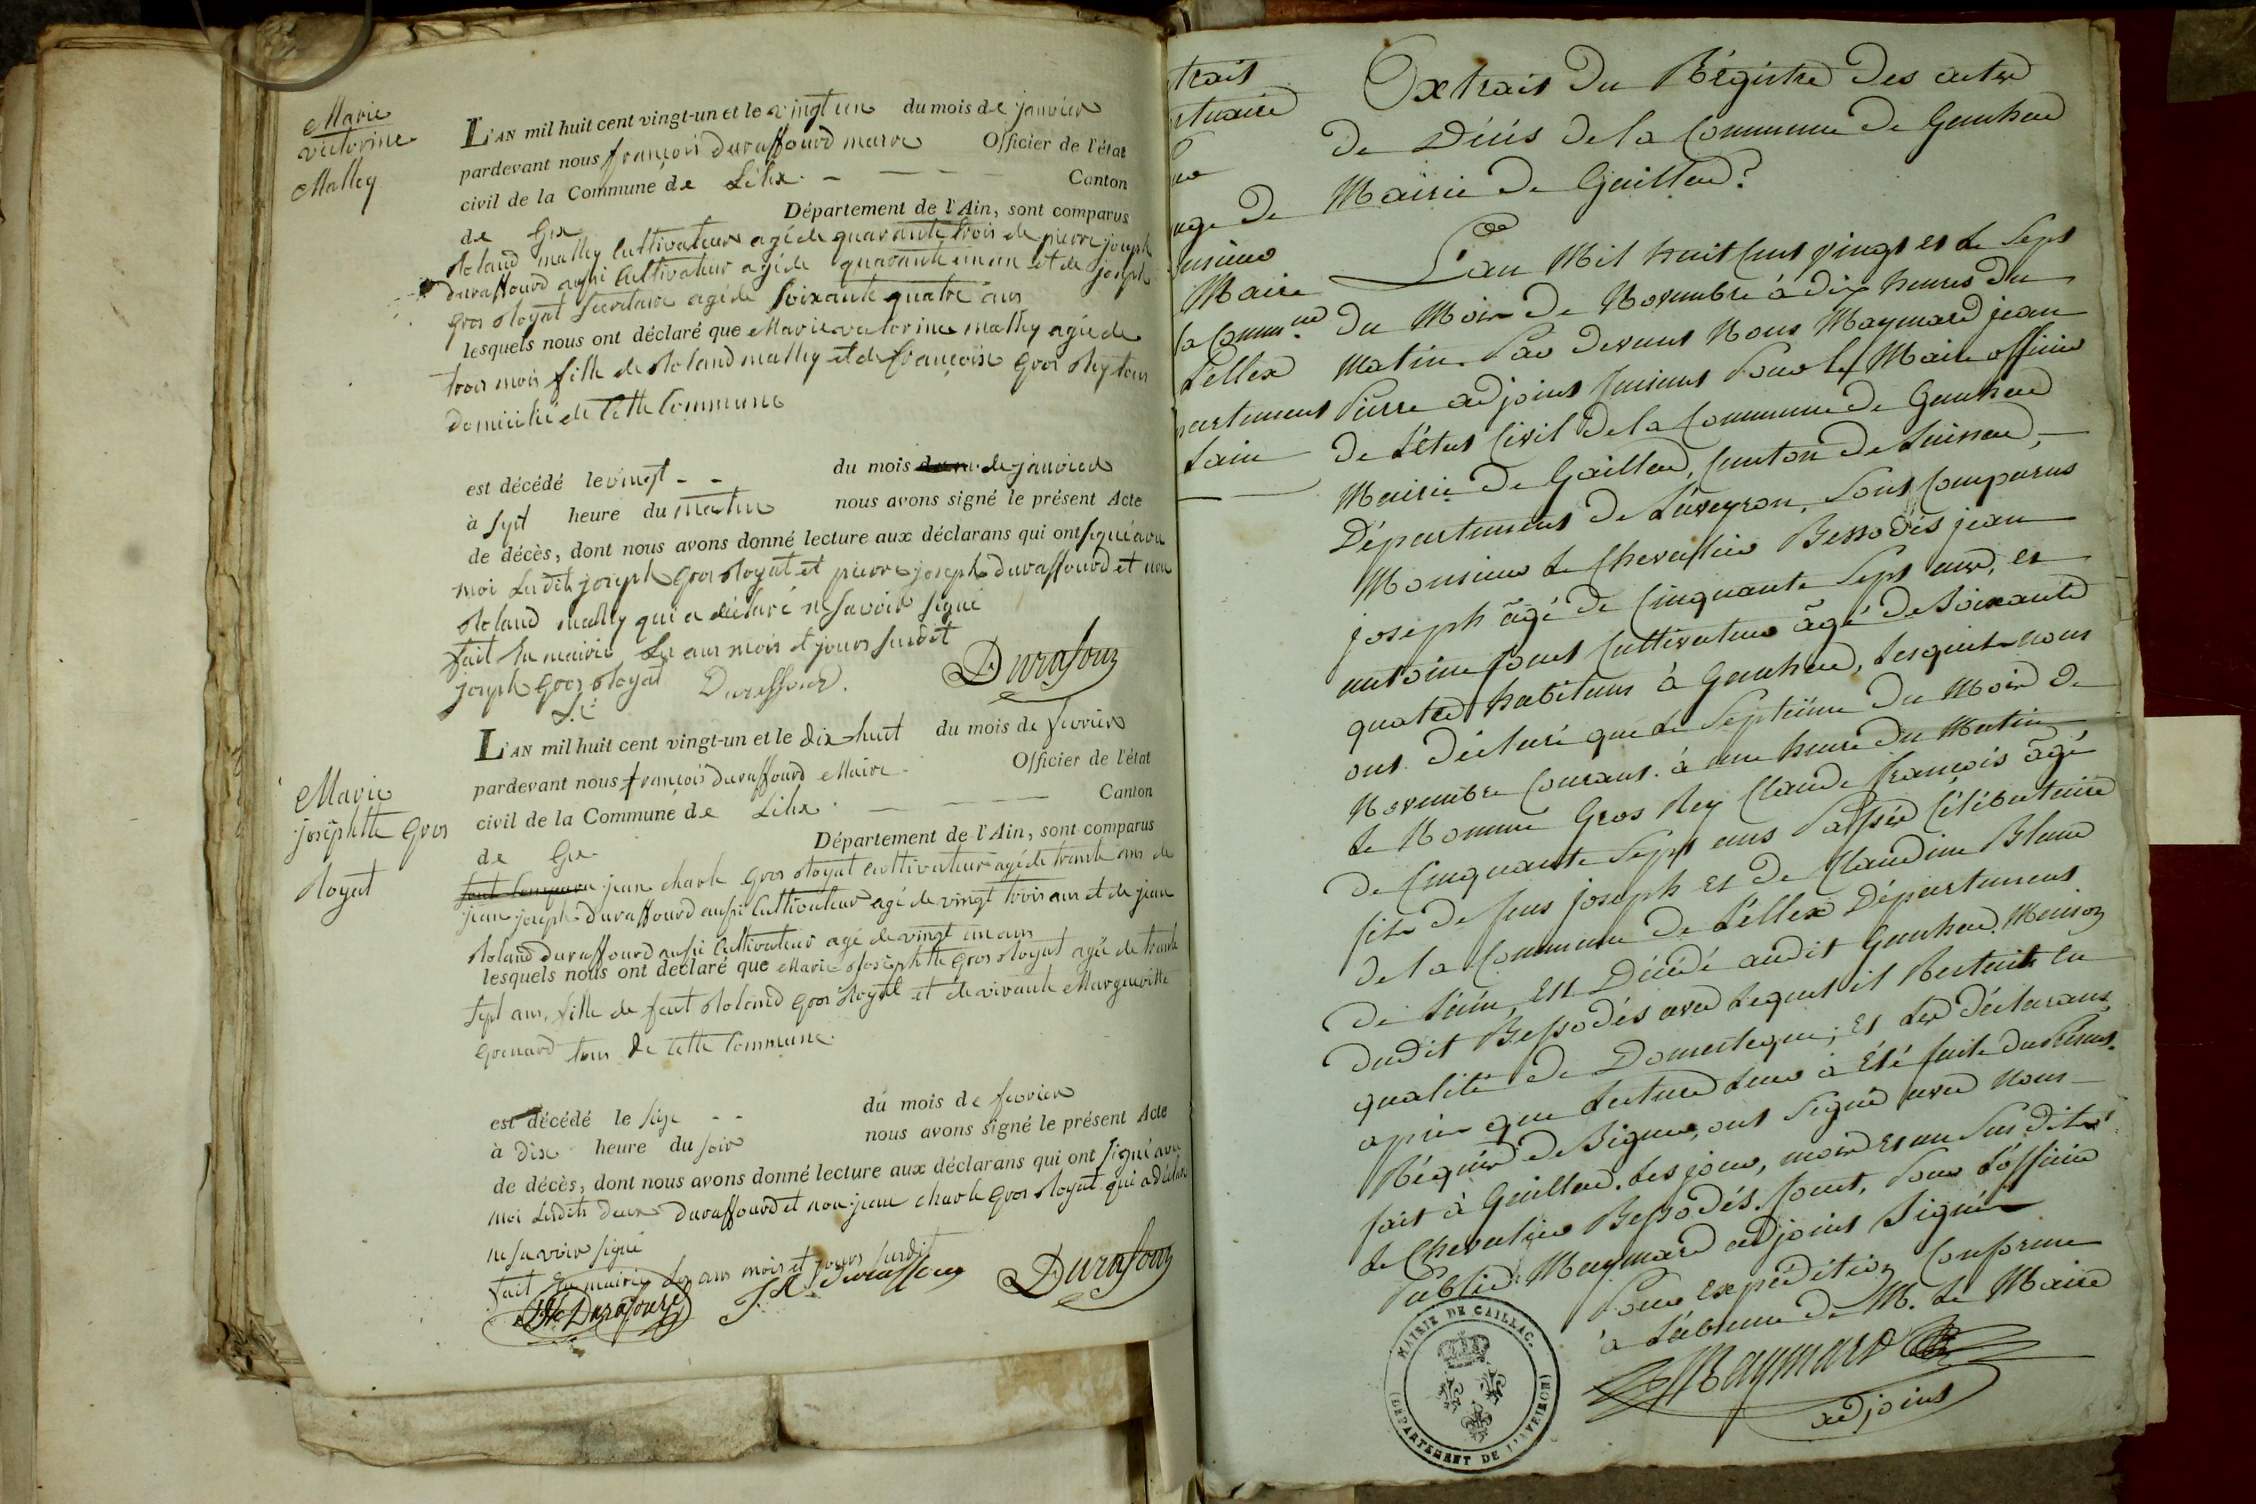 Marie
victorine
Malley
L'AN mil huit cent vingt-un et le vingt un du mois de janvier
pardevant nous françois duraffourd maire Officier de l'état
civil de la Commune de Lélex. Canton
de Gex Département de l'Ain, sont comparus
Roland malley Cultivateur agé de quarante trois de pierre joseph
duraffourd aussi Cultivateur agé de quarante un an et de joseph
Gros Royat Secretaire agé de Soixante quatre ans
lesquels nous ont déclaré que Marie victorine malley agée de
trois mois fille de Roland malley et de françoise Gros
domicilié de Cette Commune
est décédé le vingt du mois de janvier
à sept heure du matin nous avons signé le présent Acte
de décès, dont nous avons donné lecture aux déclarans qui ont signé avec
moi Lesdits joseph Gros Royat et pierre joseph duraffourd et non
Roland malley qui a déclaré ne savoir signé
fait En mairie Les ans mois et jours susdit
joseph Gros Royat Duraffourd. Durafour
L'AN mil huit cent vingt-un et le dix-huit du mois de fevrier
Marie
josephtte Gros
Royat
pardevant nous françois duraffourd Maire Officier de l'état
civil de la Commune de Lélex. Canton
de Gex Département de l'Ain, sont comparus
jean charle Gros Royat cultivateur agé de trente ans de
jean joseph duraffourd aussi Cultivateur agé de vingt trois ans et de jean
Roland duraffourd aussi Cultivateur agé de vingt un ans
lesquels nous ont déclaré que Marie Josephtte Gros Royat agée de trente
sept ans, fille de feut Roland Gros Royat et de vivante Margueritte
Grenard tous de Cette Commune.
est décédé le seze du mois de fevrier
à dix heure du soir nous avons signé le présent Acte
de décès, dont nous avons donné lecture aux déclarans qui ont signé avec
moi Lesdits deux Duraffourd et non jean charle Gros Royat qui a déclaré
ne savoir signé
fait En mairie Les ans mois et jours susdit
Durafour
trait
rtuaire
age de
Maire
la Commne
Lellex
partement
Lain
Extrait Du Régistre Des actes
de Décès de la Commune de Ganhac
Mairie de Gaillac?
L'an Mil huit Cent vingt et le Sept
du Mois de Novembre à dix heures du
Matin. Par devant Nous Maymard jean
Pierre adjoint faisant Pour le Maire officier
de L'état Civil de la Commune de Ganhac
Mairie de Gaillac, Canton de Laissac,
Département de L'aveyron, Sont Comparus
Monsieur le Chevalier Bessodés jean
joseph âgé de Cinquante Sept ans, et
antoine Cultivateur âgé de Soixante
quatre habitans à Ganhac, Lesquels nous
ont déclaré que le Septième du Mois de
Novembre Courant à une heure du Matin
le Nommé Gros Rey Claude françois âgé
de Cinquante Sept ans Passés Célibataire
fils de feus joseph et de Claudine Blanc
de la Commune de Lellex Département
de Lain, Est Décédé audit Ganhac, Maison
dudit Bessodés avec Lequel il Restait en
qualité de Domestique; et Les déclarans
après que Lecture Leur à Eté faite du Présent
Réquis de Signer, ont Signé avec nous
fait à Gaillac. Les jour, mois et an Sus dits
le Chevalier Bessodés. Pour L'officier
Public Maymard adjoint Signés
Pour expédition Conforme
à L'absence de M. le Maire
Maymard
adjoint
MAIRIE DE CAILLAC.
(DEPARTEMENT DE L'AVEIRON)